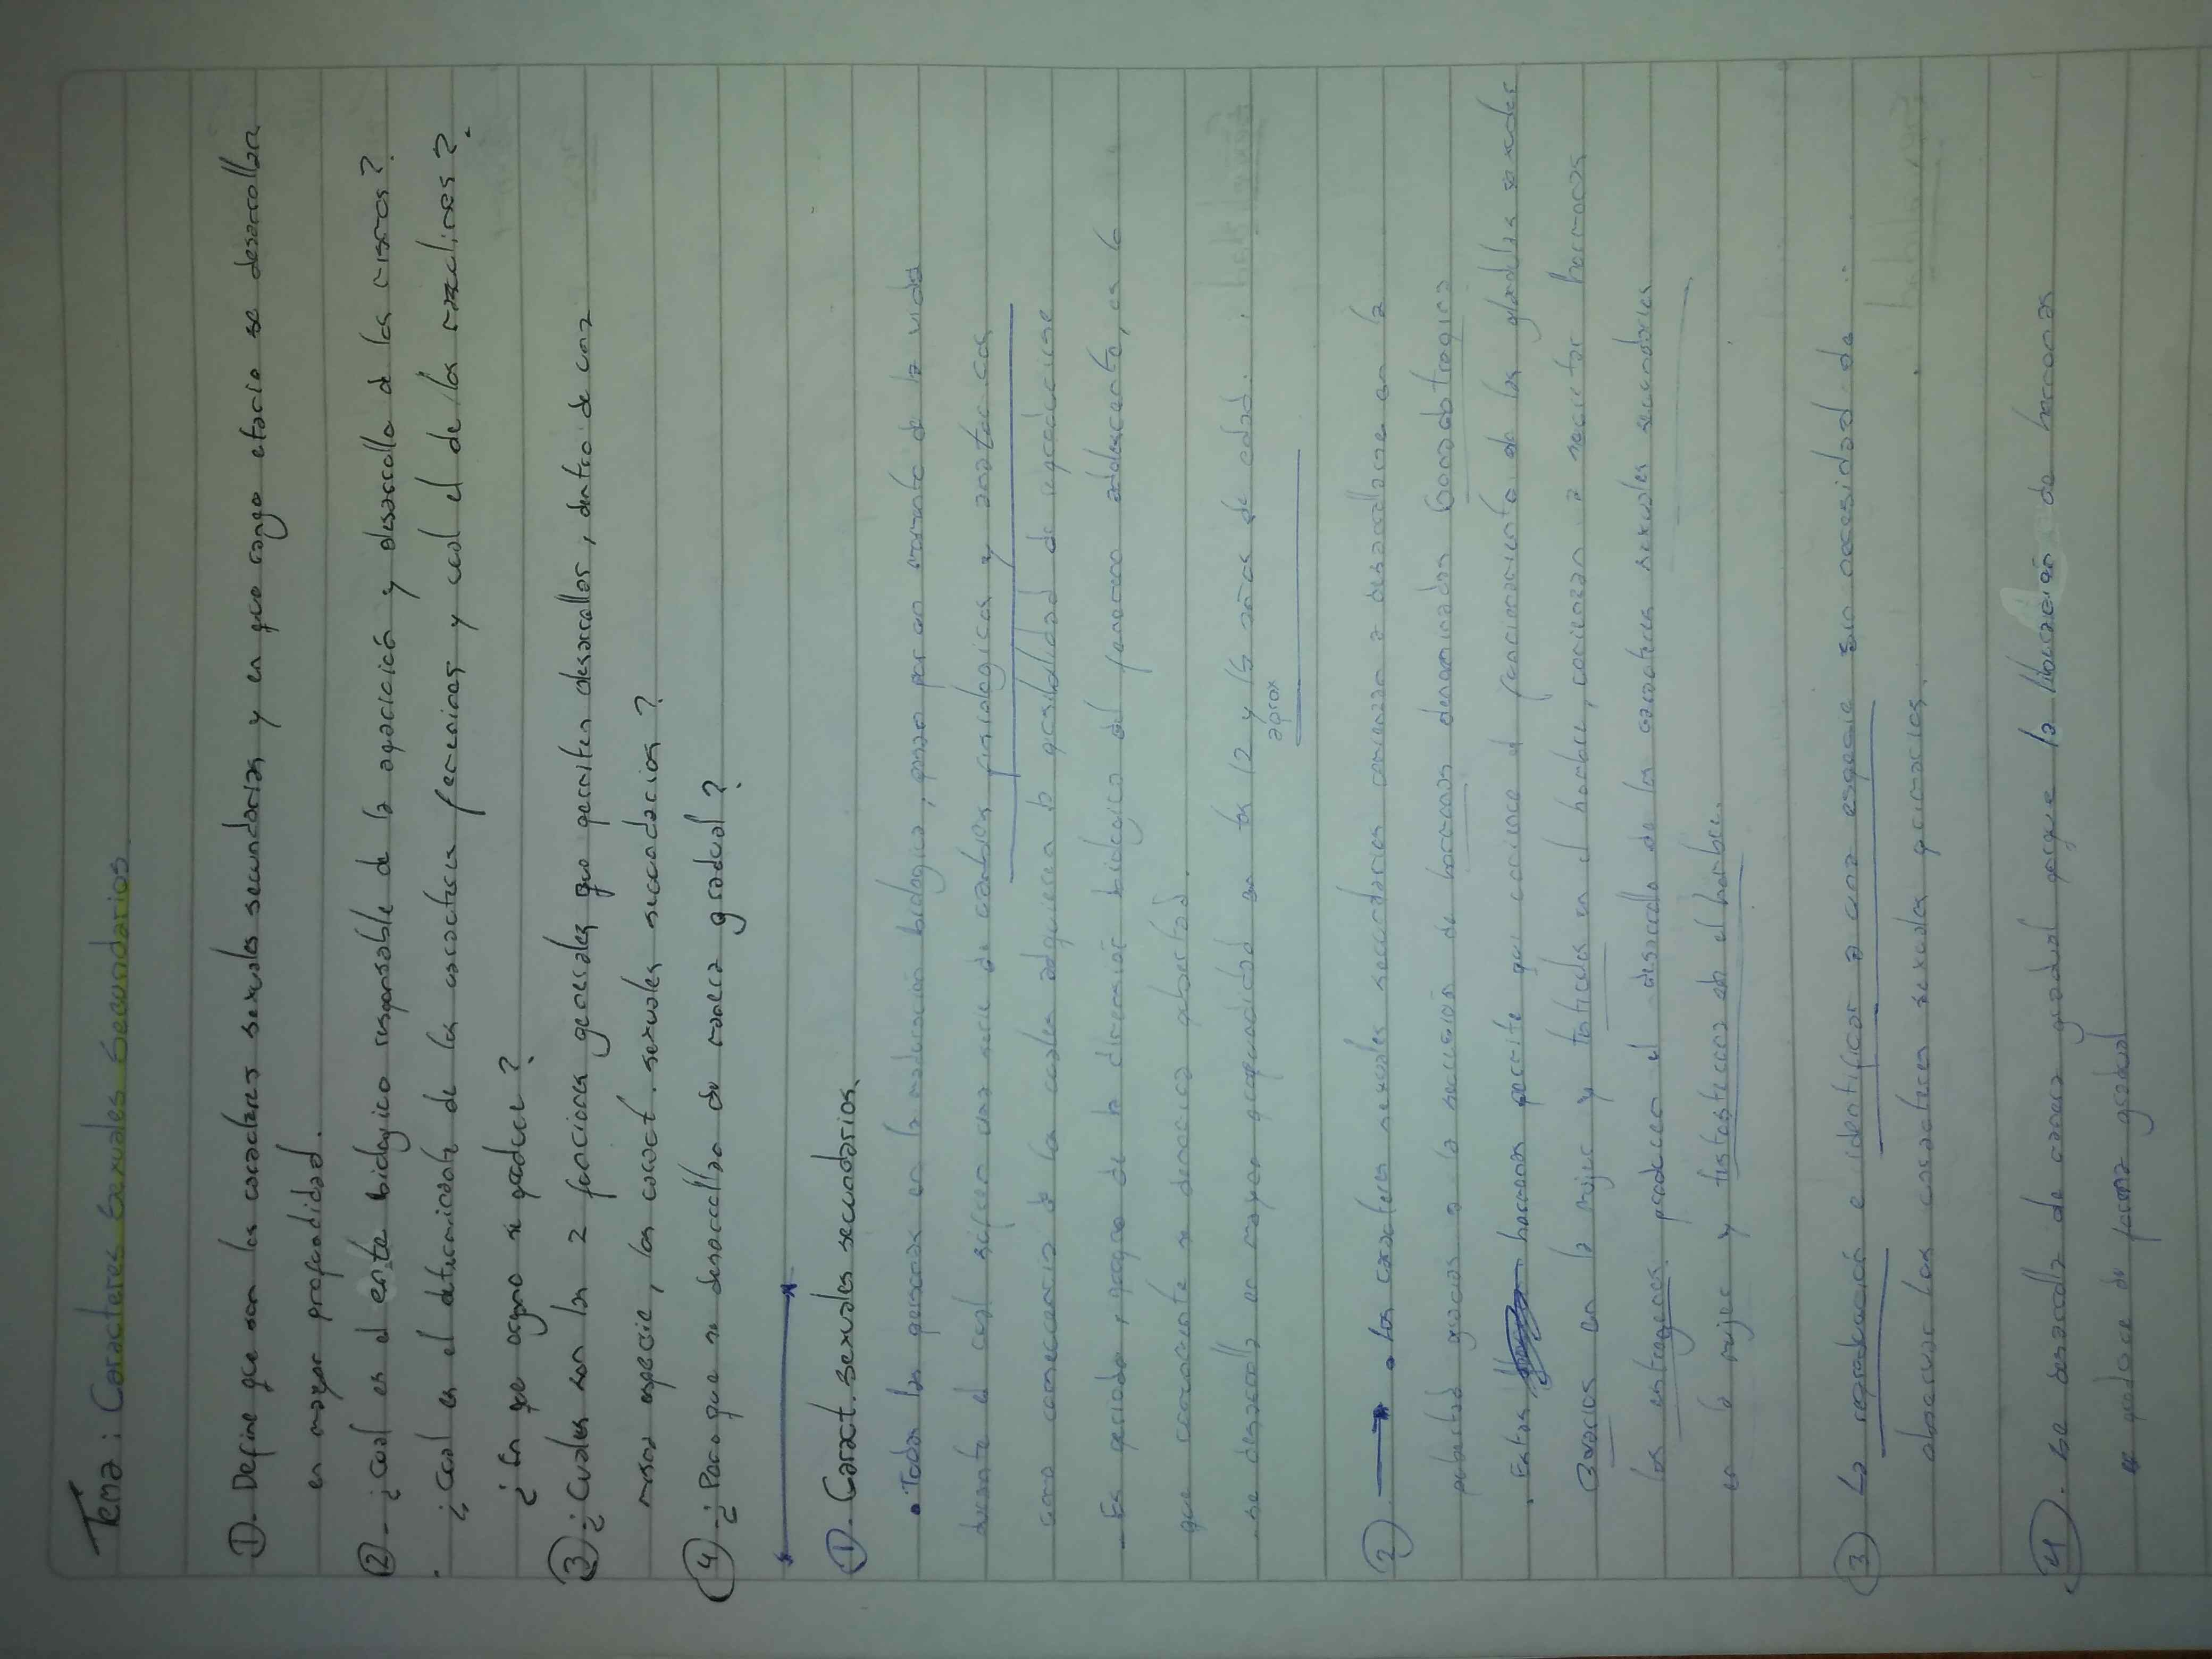 Tema: Caracteres Sexuales Secundarios.
①- Define que son los caracteres sexuales secundarios y en que rango etario se desarrollan
en mayor profundidad.
②- ¿Cual es el ente biologico responsable de la aparición y desarrollo de los mismos?
· ¿Cual es el determinante de los caracteres femeninos y cual el de los masculinos?
¿En que organo se produce?
③- ¿Cuales son las 2 funciones generales que permiten desarrollar, dentro de una
misma especie, los caract. sexuales secundarios?
④- ¿Porque se desarrollan de manera gradual?
①- Caract. sexuales secundarios.
• Todas las personas en la maduración biologica, pasan por un momento de la vida
durante el cual sufren una serie de cambios fisiologicos y anatomicos
como consecuencia de los cuales adquieren la posibilidad de reproducirse
- Es periodo, propio de la dimensión biologica del fenomeno adolescente, es lo
que comunmente se denomina pubertad.
- se desarrolla en mayor profundidad en los 12 y 15 años de edad.
aprox
②. → • Los caracteres sexuales secundarios comienzan a desarrollarse en la
pubertad gracias a la secreción de hormonas denominadas Gonadotropica
. Estas hormonas permite que comience el funcionamiento de las glandulas sexuales
Ovarios en la mujer y testiculos en el hombre, comienzan a secretar hormonas
los estrogenos producen el desarrollo de los caracteres sexuales secundarios
en la mujer y testosterona en el hombre.
③ La reproducción e identificar a una especie sin necesidad de
observar los caracteres sexuales primarios.
④. se desarrolla de manera gradual porque la liberación de hormonas
se produce de forma gradual